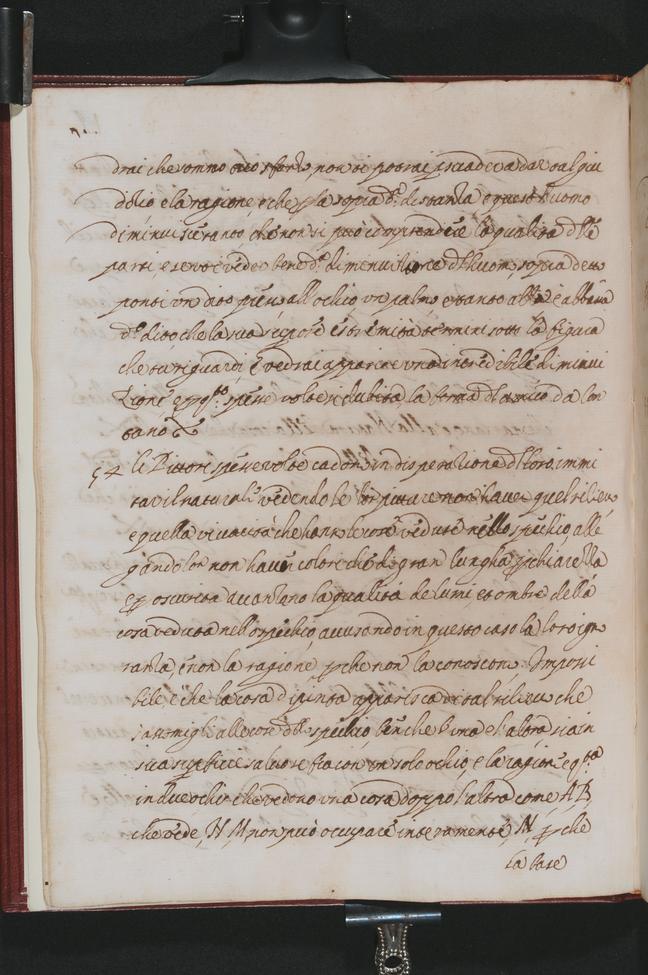 drai che sommo suo sforzo non si potrai psuadere a dar tal giu
ditio e la ragione, è che p la sopra d.ª distantia e questo huomo
diminuisce tanto che non si può comprendere la qualità dlle
parti, e se voi vedere bene d.ª diminuitione dll huomo sopra dett
ponti un dito presso all ochio un palmo e tanto alza e abbassa
d.º dito che la sua supiore estremità termini sotto la figura
che tu riguardi, e vedrai apparire una incredibile diminui
tione e p q.sto spesse volte si dubita, la forma dl amico da lon
tano
54 li Pittori spesse volte cadono in disperatione dl loro immi
tar il naturale vedendo le lor pitture non haver quel rilievo
e quella vivacità che hanno le cose vedute nello spechio, alle
gando lor non haver colori che di gran lungha p chiarezza
e p oscurità avanzano la qualità de lumi, et ombre della
cosa veduta nello spechio, accusando in questo caso la loro igno
ranza, e non la ragione p che non la conoscono. Imposi
bile, è che la cosa dipinta apparisca di tal rilievo che
s'assomigli alle cose dllo spechio benche l'una e l'altra sia in
su una supfitie salvo se fia con un solo ochio, e la ragion è q.sta
in due ochi che vedono una cosa doppo l'altra come A B,
che vede, N M, non può occupare interamente, N p chè
la base